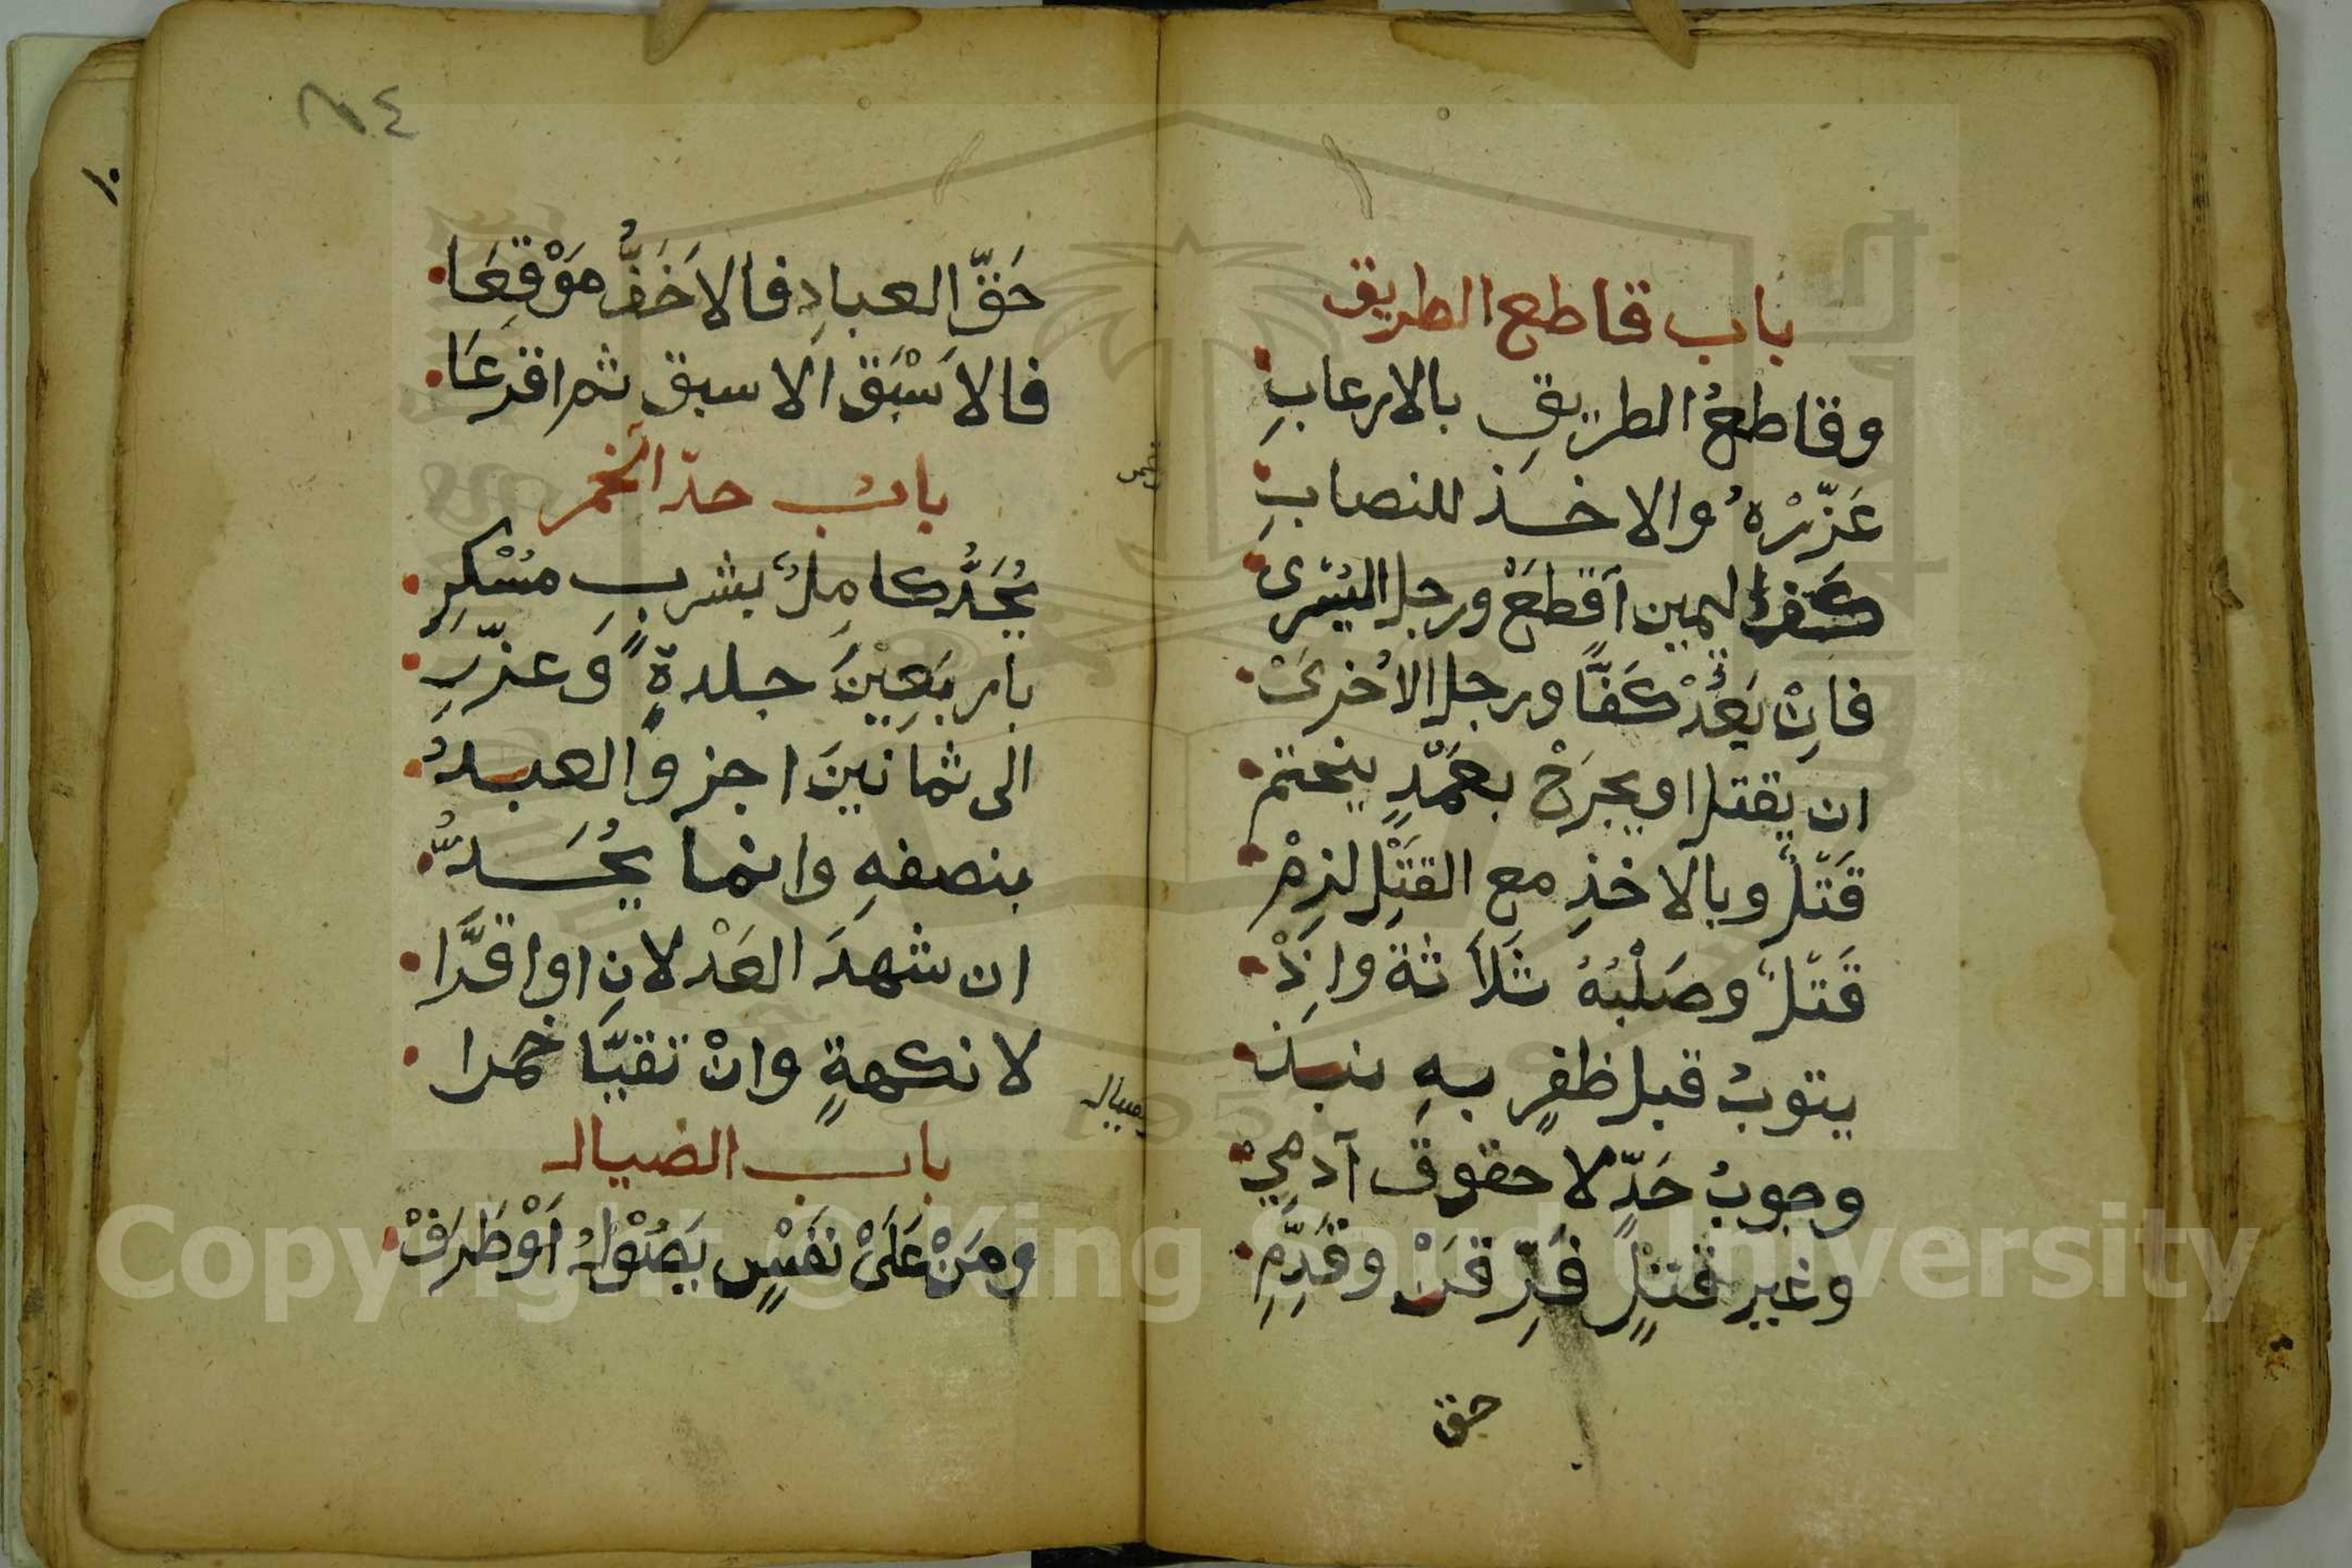 باب قاطع الطريق
وقاطعُ الطريقِ بالارعابِ
عَزِّرْهُ والاخذ للنصابِ
كف اليمين اقطعْ ورجل اليُسْرى
فاِنْ يَعُدْ كَفًّا ورجل الاُخرىْ
ان يقتل او يجرَحْ بعَمْدٍ ينحتم
قَتْلٌ وبالاخذِ مع القَتْلِ لزِمْ
قَتْلٌ وصَلْبُهُ ثَلاَثةً واِذْ
يتوبُ قبل ظفرٍ بهِ نبذ
وجوبُ حَدٍّ لا حقوق آدمِيْ
وغير قتلٍ فَرِّقَنْ وقَدِّمِ
حق
٨٤
١٠
حَقّ العبادِ فالاَخَفُّ مَوْقِعَا
فالاَسْبَق الاسبق ثم اقرعَا
بابُ حدّ الخمر
يُحَدُّ كامِلٌ بشربِ مُسْكِرِ
باربَعِيْنَ جلدةً وَعزّرِ
الى ثمانينَ اجز والعبدُ
بنصفهِ وانما يُحَدُّ
ان شهدَ العَدْلانِ او اقرَّا
لا نكهةٍ وانْ تقيَّا خمرا
باب الصيال
ومَنْ عَلَىْ نَفْسٍ يَصُوْلُ اَوْ طَرَفْ
Copyright © King Saud University
1957